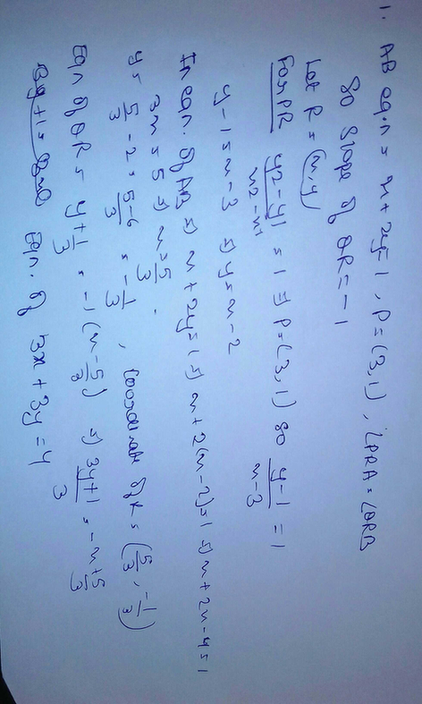 1. AB eqn = x + 2y = 1, P = (3, 1), ∠PRA = ∠QRB
So slope of QR = -1
Let R = (x, y)
For PR y2 - y1 / x2 - x1 = 1 ⇒ P = (3, 1) So y - 1 / x - 3 = 1
y - 1 = x - 3 ⇒ y = x - 2
In eqn. of AB ⇒ x + 2y = 1 ⇒ x + 2(x - 2) = 1 ⇒ x + 2x - 4 = 1
3x = 5 ⇒ x = 5/3.
y = 5/3 - 2 = 5-6/3 = -1/3, Coordinate of R = (5/3, -1/3)
Eqn of QR = y + 1/3 = -1(x - 5/3) ⇒ 3y+1/3 = -x + 5/3
3y + 1 = Eqn. of 3x + 3y = 4